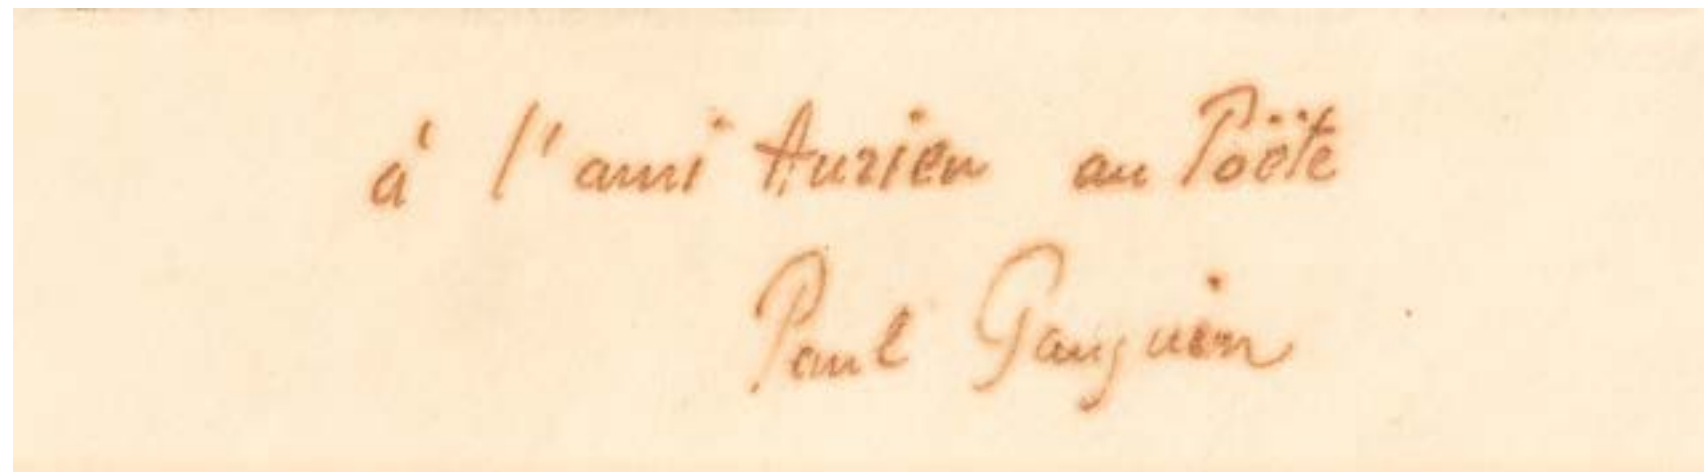 à l'ami Aurien au Poëte
Paul Gauguin